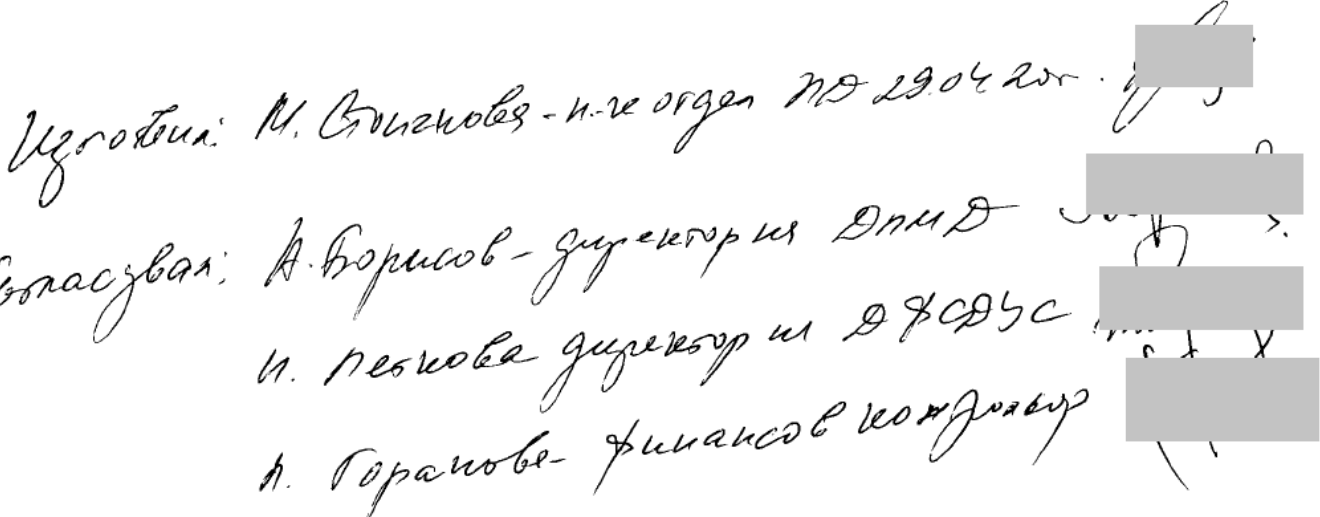 Изготвил: М. Стоичкова - н-к отдел ПД 29.04 20г.
Съгласувал: А. Борисов - директор на ДПМД
И. Петкова директор на ДФСДУС
Л. Горанова - финансов контрольор